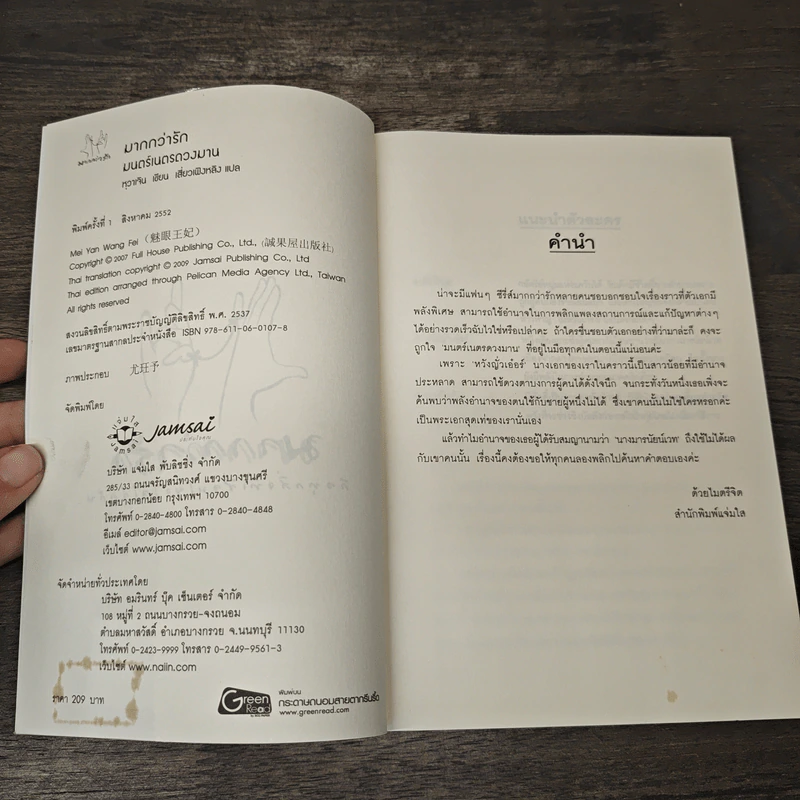 มากกว่ารัก
มากกว่ารัก
มนตร์เนตรดวงมาน
หูวาเจิน เขียน เสี่ยวเฟิงหลิง แปล
พิมพ์ครั้งที่ 1 สิงหาคม 2552
Mei Yan Wang Fei (魅眼王妃)
Copyright © 2007 Full House Publishing Co., Ltd., (誠果屋出版社)
Thai translation copyright © 2009 Jamsai Publishing Co., Ltd
Thai edition arranged through Pelican Media Agency Ltd., Taiwan
All rights reserved
สงวนลิขสิทธิ์ตามพระราชบัญญัติลิขสิทธิ์ พ.ศ. 2537
เลขมาตรฐานสากลประจำหนังสือ ISBN 978-611-06-0107-8
ภาพประกอบ 尤玨予
จัดพิมพ์โดย
แจ่มใส jamsai
Jamsai
บริษัท แจ่มใส พับลิชชิ่ง จำกัด
285/33 ถนนจรัญสนิทวงศ์ แขวงบางขุนศรี
เขตบางกอกน้อย กรุงเทพฯ 10700
โทรศัพท์ 0-2840-4800 โทรสาร 0-2840-4848
อีเมล์ editor@jamsai.com
เว็บไซต์ www.jamsai.com
จัดจำหน่ายทั่วประเทศโดย
บริษัท อมรินทร์ บุ๊ค เซ็นเตอร์ จำกัด
108 หมู่ที่ 2 ถนนบางกรวย-จงถนอม
ตำบลมหาสวัสดิ์ อำเภอบางกรวย จ.นนทบุรี 11130
โทรศัพท์ 0-2423-9999 โทรสาร 0-2449-9561-3
เว็บไซต์ www.naiin.com
ราคา 209 บาท
Green Read
พิมพ์บน
กระดาษถนอมสายตากรีนรี้ด
www.greenread.com
แนะนำตัวละคร
คำนำ
น่าจะมีแฟนๆ ซีรี่ส์มากกว่ารักหลายคนชอบอกชอบใจเรื่องราวที่ตัวเอกมี
พลังพิเศษ สามารถใช้อำนาจในการพลิกแพลงสถานการณ์และแก้ไขปัญหาต่างๆ
ได้อย่างรวดเร็วฉับไวใช่หรือเปล่าคะ ถ้าใครชื่นชอบตัวเอกอย่างที่ว่ามาล่ะก็ คงจะ
ถูกใจ 'มนตร์เนตรดวงมาน' ที่อยู่ในมือทุกคนในตอนนี้แน่นอนค่ะ
เพราะ 'หวังญั่วเอ๋อร์' นางเอกของเราในคราวนี้เป็นสาวน้อยที่มีอำนาจ
ประหลาด สามารถใช้ดวงตาบงการผู้คนได้ดั่งใจนึก จนกระทั่งวันหนึ่งเธอเพิ่งจะ
ค้นพบว่าพลังอำนาจของตนใช้กับชายผู้หนึ่งไม่ได้ ซึ่งเขาคนนั้นไม่ใช่ใครหรอกค่ะ
เป็นพระเอกสุดเท่ของเรานั่นเอง
แล้วทำไมอำนาจของเธอผู้ได้รับสมญานามว่า 'นางมารนัยน์เวท' ถึงใช้ไม่ได้ผล
กับเขาคนนั้น เรื่องนี้คงต้องขอให้ทุกคนลองพลิกไปค้นหาคำตอบเองค่ะ
ด้วยไมตรีจิต
สำนักพิมพ์แจ่มใส